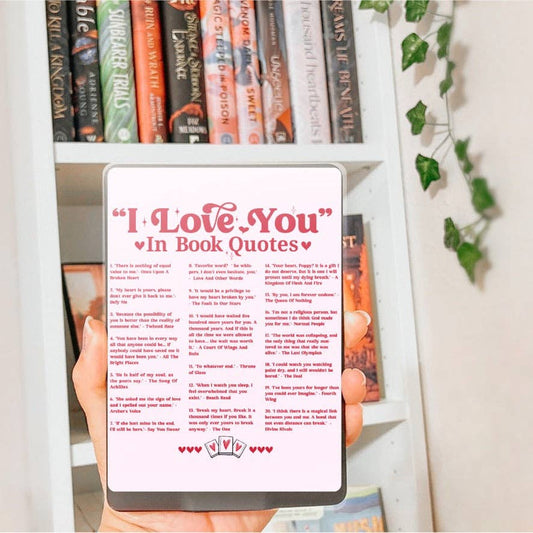 TO KILL A KINGDOM
able
ADRIENNE YOUNG
SUNBEARER TRIALS
RUIN AND WRATH
Dance of Thieves
MAGIC STEEPED IN POISON
VENOM DARK SWEET
UNRAVELLER
thousand heartbeats
DREAMS LIE BENEATH
"I Love You"
In Book Quotes
1. 'There is nothing of equal
value to me.' - Once Upon A
Broken Heart
2. 'My heart is yours, please
don't ever give it back to me.' -
Only Us
3. 'Because the possibility of
you is better than the reality of
someone else.' - Twisted Hate
4. 'You have been in every way
all that anyone could be... If
anybody could have saved me it
would have been you.' - All The
Bright Places
5. 'He is half of my soul, as
the poets say.' - The Song Of
Achilles
6. 'She asked me the sign of love
and I spelled out your name.' -
Archer's Voice
7. 'If the hurt mine in the end,
I'll still be hers.' - Say You Swear
8. 'Favorite word?' - 'he whis-
pers. I don't even hesitate, you.'
- Love And Other Words
9. 'It would be a privilege to
have my heart broken by you.'
- The Fault In Our Stars
10. 'I would have waited five
hundred more years for you. A
thousand years. And if this is
all the time we were allowed
to have... the wait was worth
it.' - A Court Of Wings And
Ruin
11. 'To whatever end.' - Throne
of Glass
12. 'When I watch you sleep, I
feel overwhelmed that you
exist.' - Beach Read
13. 'Break my heart. Break it a
thousand times if you like. It
was only ever yours to break
anyway.' - The One
14. 'Your heart, Poppy? It is a gift I
do not deserve. But it is one I will
protect until my dying breath.' - A
Kingdom Of Flesh And Fire
15. 'By you, I am forever undone.' -
The Queen Of Nothing
16. 'I'm not a religious person, but
sometimes I do think God made
you for me.' - Normal People
17. 'The world was collapsing, and
the only thing that really mat-
tered to me was that she was
alive.' - The Last Olympian
18. 'I could watch you watching
paint dry, and I still wouldn't be
bored.' - The Deal
19. 'I've been yours for longer than
you could ever imagine.' - Fourth
Wing
20. 'I think there is a magical link
between you and me. A bond that
not even distance can break.' -
Divine Rivals